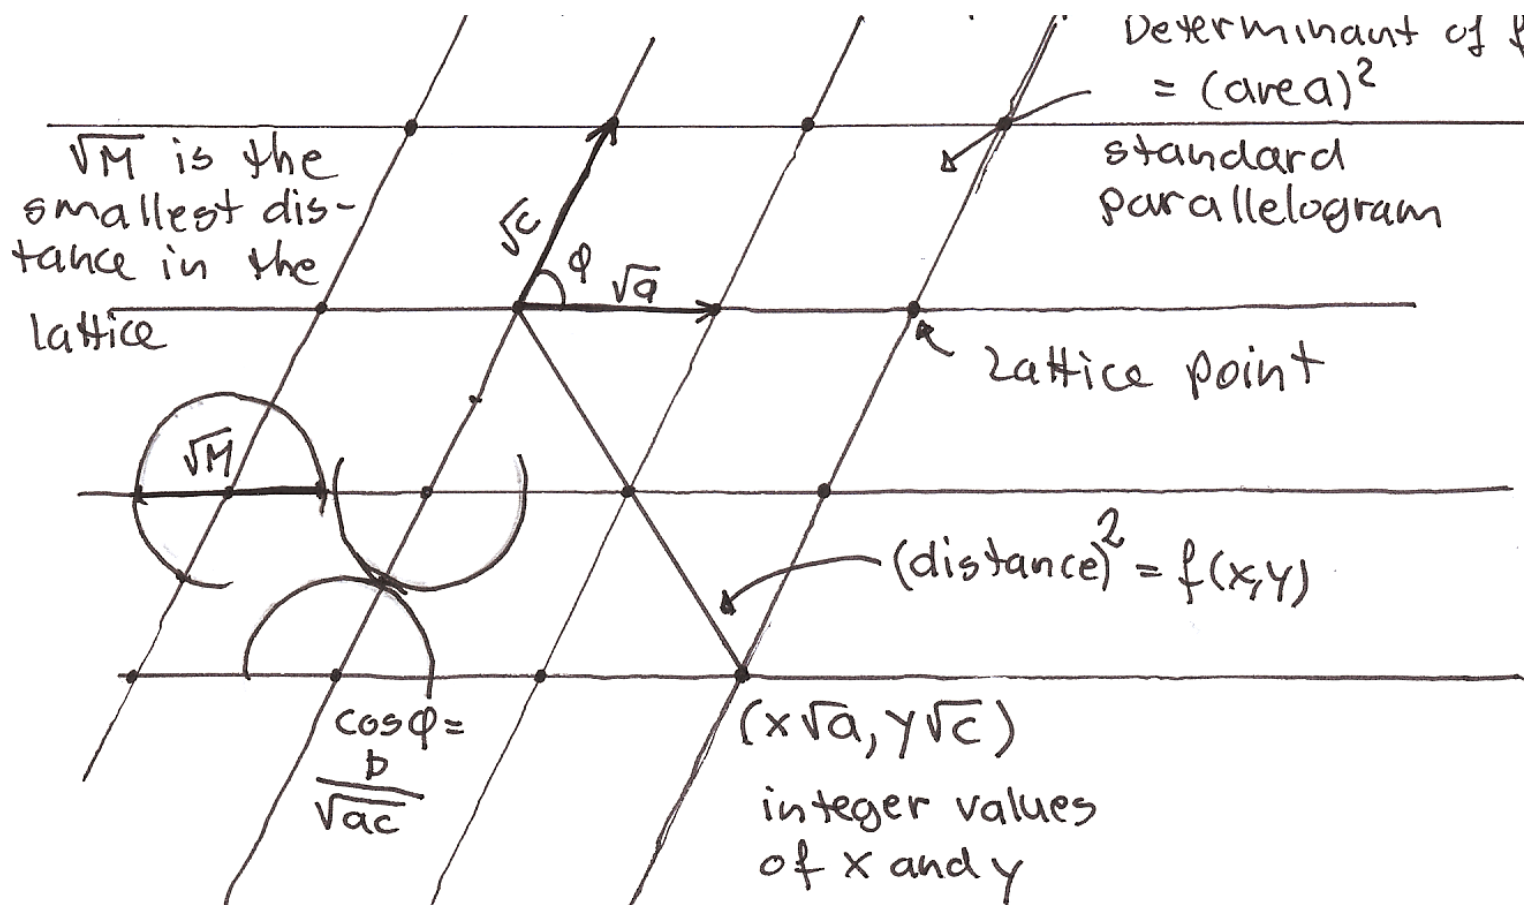 Determinant of f
= (area)²
standard
parallelogram
√M is the
smallest dis-
tance in the
lattice
√c
φ
√a
Lattice point
√M
(distance)² = f(x,y)
cosφ=
b
√ac
(x√a, y√c)
integer values
of x and y